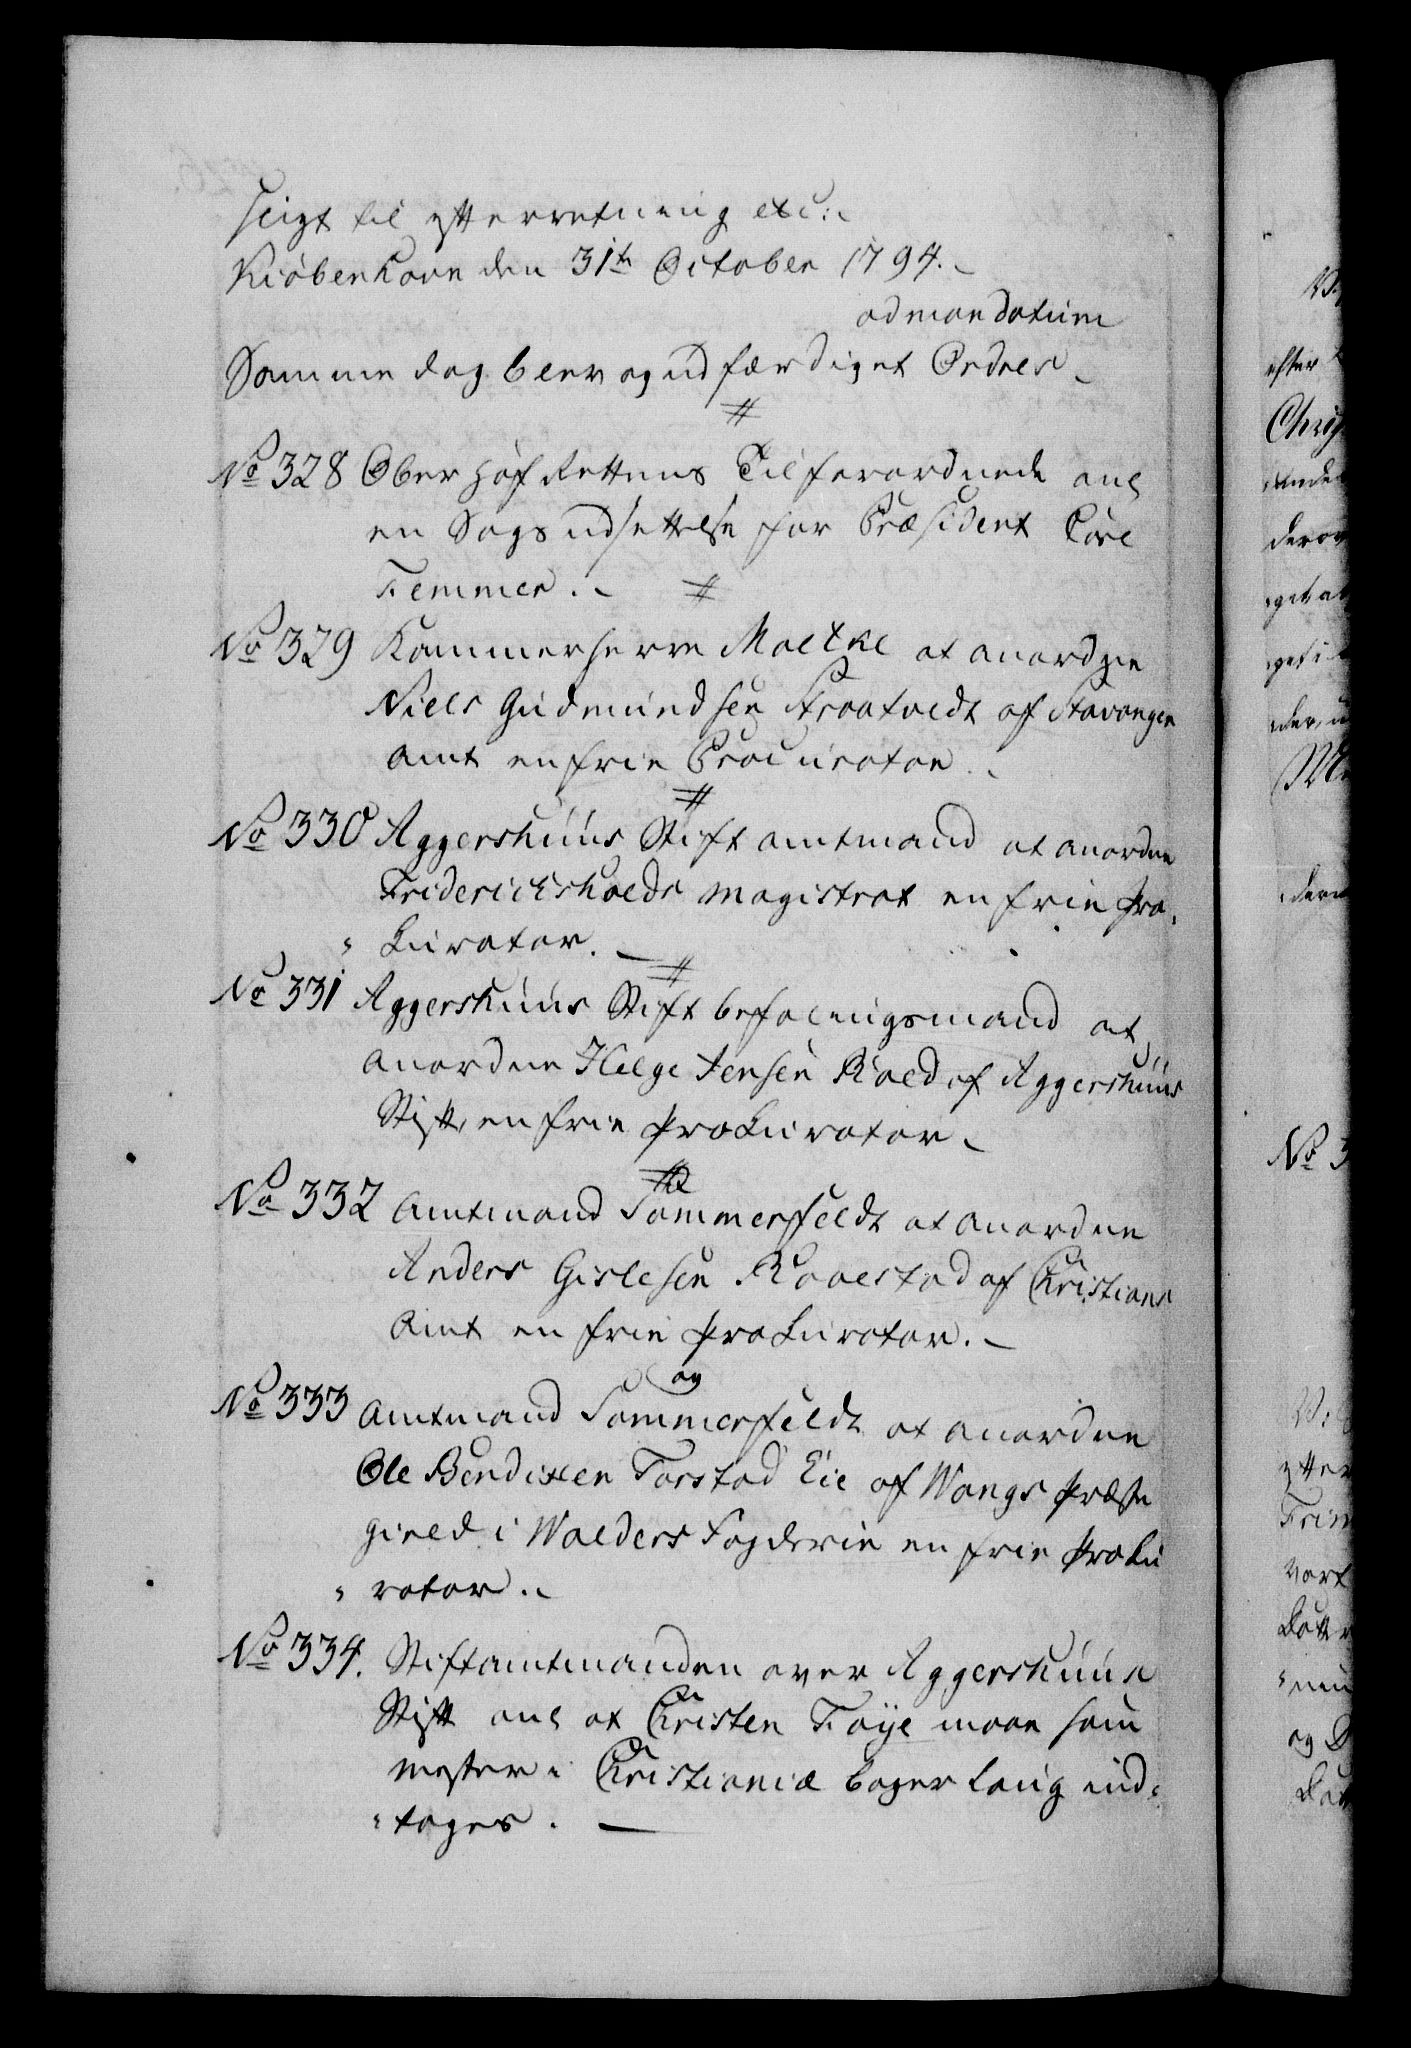 seigt til efterretning etc:
Kiøbenhavn den 31te October 1794.
ad mandatum
Samme dag blev og udfærdiget Ordres
#
No 328 Ober Hof Rettens Tilforordnede anl
en Sags udsettelse for Præsident Carl
Femmer. #
No 329 Kammerherre Moltke at anordne
Niels Gudmundsen Araatvedt af Stavanger
Amt en frie Procurator.
#
No 330 Aggershuus Stiftamtmand at anordne
Friderichshalds Magistrat en frie Pro-
kurator.
#
No 331 Aggershuus Stiftbefalingsmand at
anordne Helge Jensen Roed af Aggershuus
Stift, en frie Prokurator
#
No 332 Amtmand Sommerfeldt at anordne
Anders Gislesen Raaestad af Christians
Amt en frie Prokurator.
og
No 333 Amtmand Sommerfeldt at anordne
Ole Bendixen Torstad Eie af Wangs Præste
gield i Walders Fogderie en frie Proku
rator.
No 334. Stiftamtmanden over Aggershuus
Stift anl at Christen Føye maae som
mester i Christianiæ Bager laug ind-
tages.